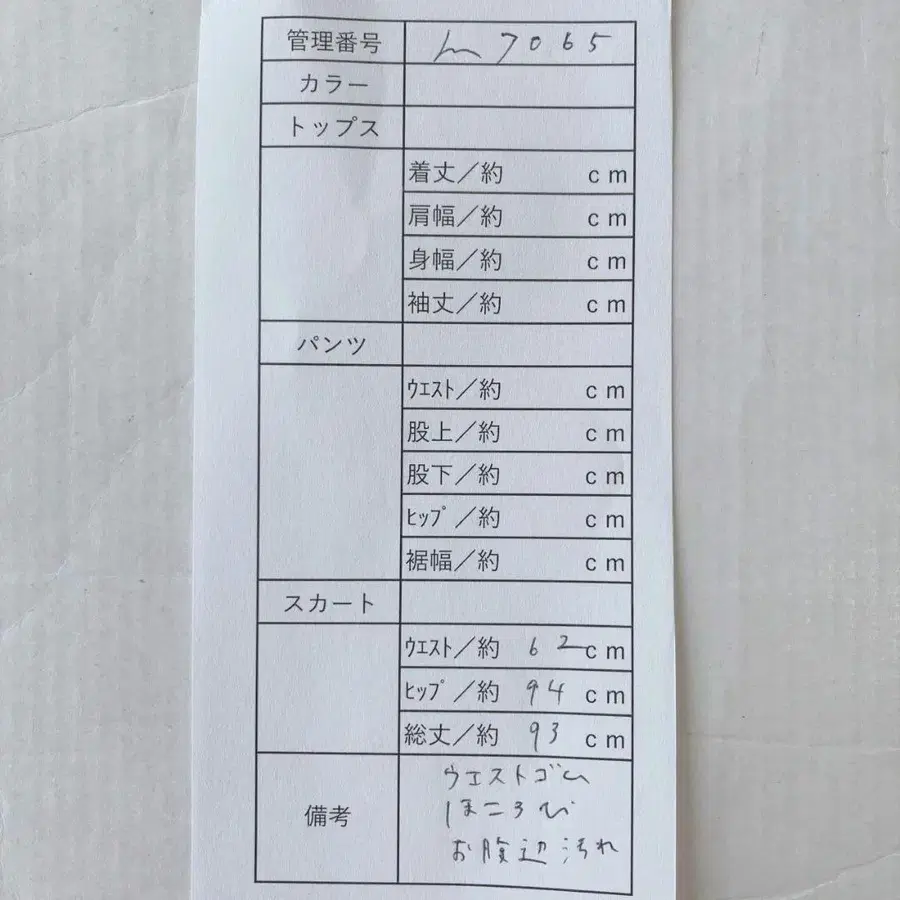 管理番号 m7065
カラー
トップス
着丈／約 cm
肩幅／約 cm
身幅／約 cm
袖丈／約 cm
パンツ
ｳｴｽﾄ／約 cm
股上／約 cm
股下／約 cm
ﾋｯﾌﾟ／約 cm
裾幅／約 cm
スカート
ｳｴｽﾄ／約 62cm
ﾋｯﾌﾟ／約 94cm
総丈／約 93cm
備考
ウエストゴム
ほころび
お腹辺汚れ